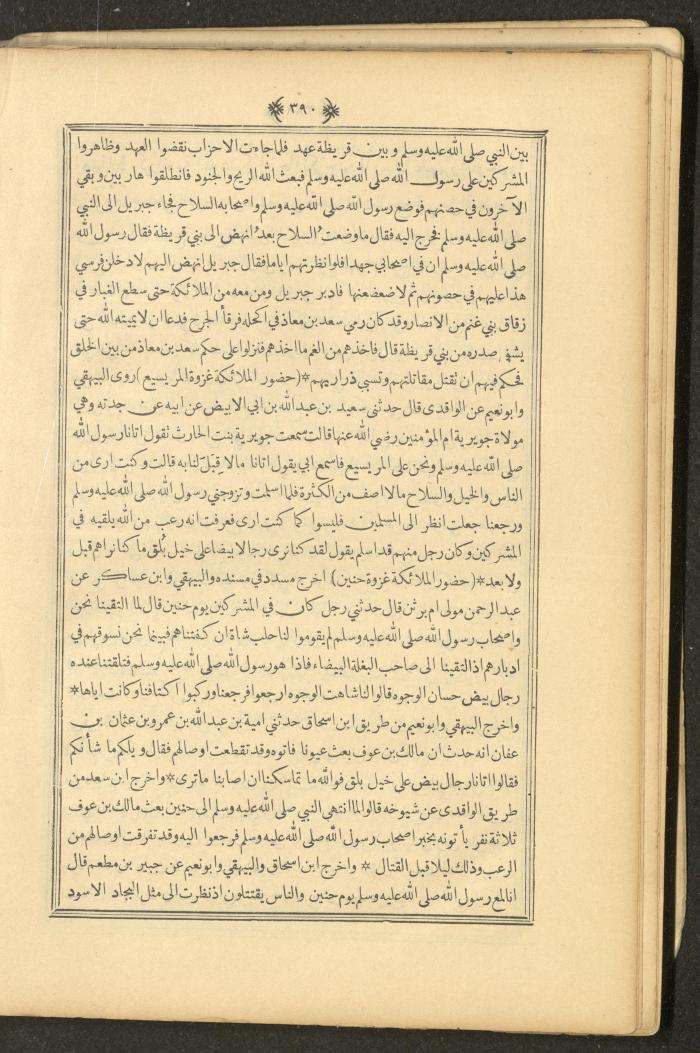 ٣٩٠
بين النبي صلى الله عليه وسلم وبين قريظة عهد فلما جاءت الاحزاب نقضوا العهد وظاهروا
المشركين على رسول الله صلى الله عليه وسلم فبعث الله الريح والجنود فانطلقوا هاربين وبقي
الآخرون في حصنهم فوضع رسول الله صلى الله عليه وسلم واصحابه السلاح فجاء جبريل الى النبي
صلى الله عليه وسلم فخرج اليه فقال ما وضعت السلاح بعد انهض الى بني قريظة فقال رسول الله
صلى الله عليه وسلم ان في اصحابي جهدا فلو انظرتهم اياما فقال جبريل انهض اليهم لادخلن فرسي
هذا عليهم في حصونهم ثم لاضعضعنها فادبر جبريل ومن معه من الملائكة حتى سطع الغبار في
زقاق بني غنم من الانصار وقد كان رمي سعد بن معاذ في اكحله فرقأ الجرح فدعا ان لا يميته الله حتى
يشفى صدره من بني قريظة قال فاخذهم من الغم ما اخذهم فنزلوا على حكم سعد بن معاذ من بين الخلق
فحكم فيهم ان تقتل مقاتلتهم وتسبي ذراريهم * (حضور الملائكة غزوة المريسيع) روى البيهقي
وابونعيم عن الواقدى قال حدثني سعيد بن عبد الله بن ابي الابيض عن ابيه عن جدته وهي
مولاة جويرية ام المؤمنين رضي الله عنها قالت سمعت جويرية بنت الحارث تقول اتانا رسول الله
صلى الله عليه وسلم ونحن على المريسيع فاسمع ابي يقول اتانا ما لا قِبَل لنا به قالت وكنت ارى من
الناس والخيل والسلاح ما لا اصف من الكثرة فلما اسلمت وتزوجني رسول الله صلى الله عليه وسلم
ورجعنا جعلت انظر الى المسلمين فليسوا كما كنت ارى فعرفت انه رعب من الله يلقيه في
المشركين وكان رجل منهم قد اسلم يقول لقد كنا نرى رجالا بيضا على خيل بُلق ما كنا نراهم قبل
ولا بعد * (حضور الملائكة غزوة حنين) اخرج مسدد في مسنده والبيهقي وابن عساكر عن
عبد الرحمن مولى ام برثن قال حدثني رجل كان في المشركين يوم حنين قال لما التقينا نحن
واصحاب رسول الله صلى الله عليه وسلم لم يقوموا لنا حلب شاة ان كفتناهم فبينما نحن نسوقهم في
ادبارهم اذ التقينا الى صاحب البغلة البيضاء فاذا هو رسول الله صلى الله عليه وسلم فتلقتنا عنده
رجال بيض حسان الوجوه قالوا لنا شاهت الوجوه ارجعوا فرجعنا وركبوا اكتافنا وكانت اياها *
واخرج البيهقي وابونعيم من طريق ابن اسحاق حدثني امية بن عبد الله بن عمرو بن عثمان بن
عفان انه حدث ان مالك بن عوف بعث عيونا فاتوه وقد تقطعت اوصالهم فقال ويلكم ما شأنكم
فقالوا اتانا رجال بيض على خيل بلق فوالله ما تماسكنا ان اصابنا ما ترى * واخرج ابن سعد من
طريق الواقدى عن شيوخه قالوا لما انتهى النبي صلى الله عليه وسلم الى حنين بعث مالك بن عوف
ثلاثة نفر يأتونه بخبر اصحاب رسول الله صلى الله عليه وسلم فرجعوا اليه وقد تفرقت اوصالهم من
الرعب وذلك ليلا قبل القتال * واخرج ابن اسحاق والبيهقي وابونعيم عن جبير بن مطعم قال
انا لمع رسول الله صلى الله عليه وسلم يوم حنين والناس يقتتلون اذ نظرت الى مثل البجاد الاسود